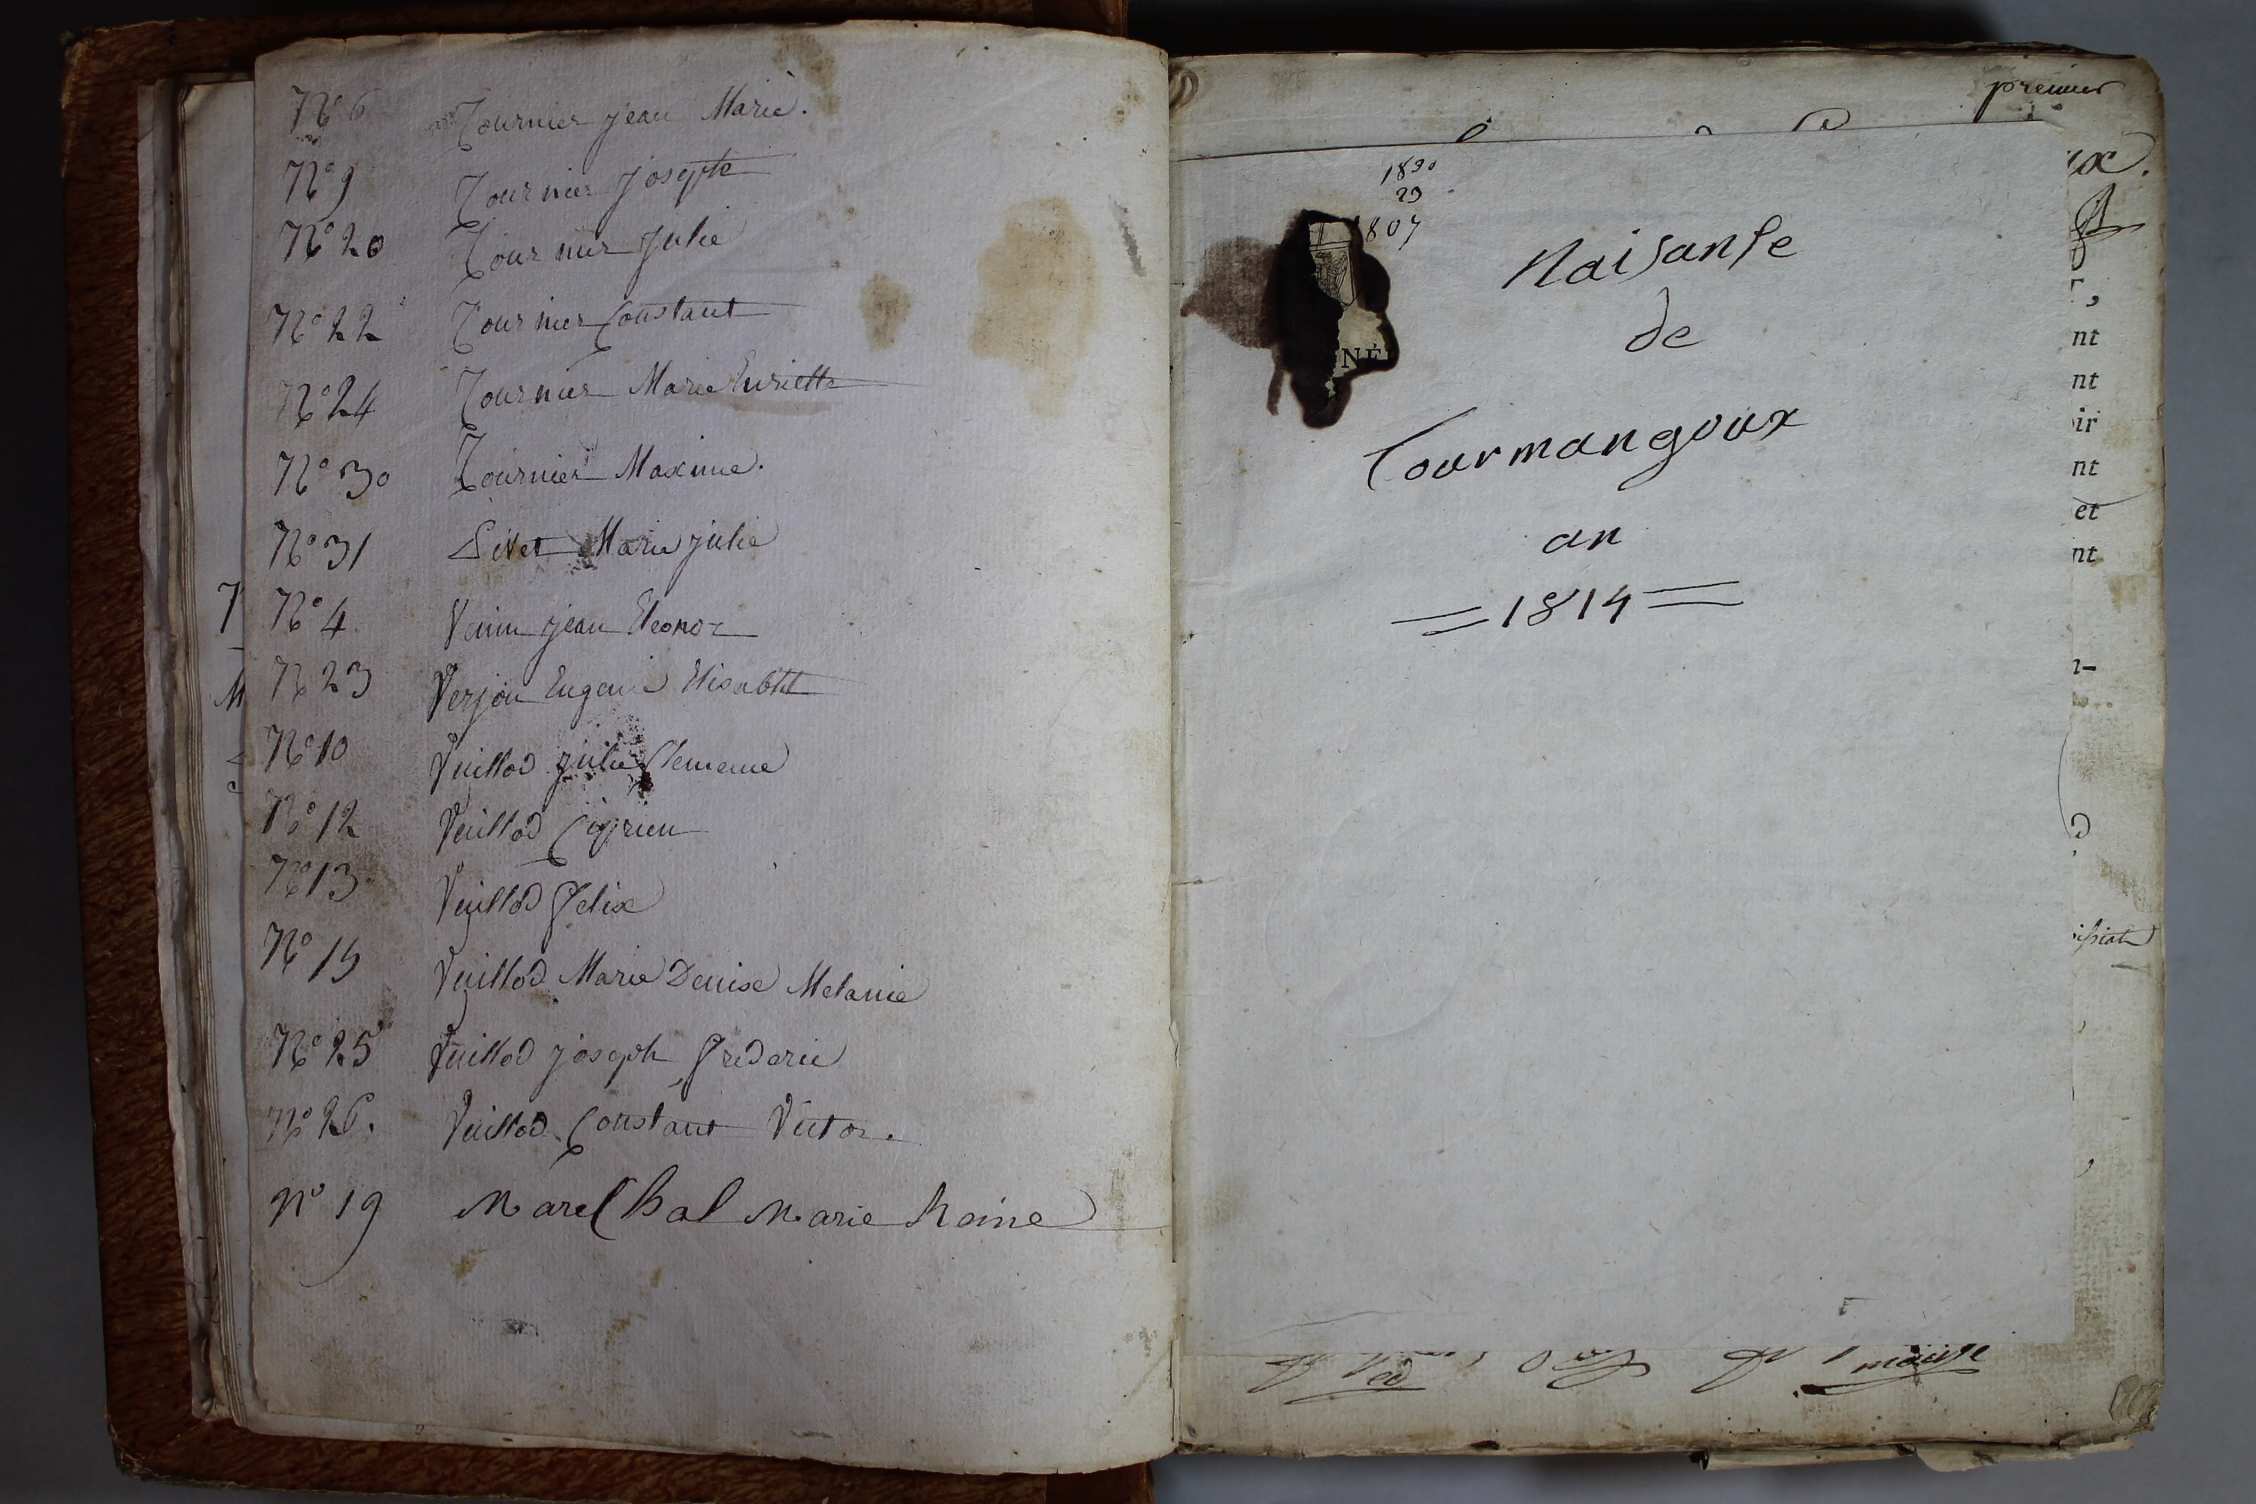 N° 6 Tournier jean Marie.
N° 9 Tournier joseph
N° 20 Tournier julie
N° 22 Tournier Constant
N° 24 Tournier Marie Enriette
N° 30 Tournier Maxime.
N° 31 Livet Marie julie
N° 4 jean Eleonor
N° 23 Verjon Eugenie Elisabeth
N° 10 Vuillod julie Clemence
N° 12 Vuillod Ciprien
N° 13 Vuillod Felix
N° 15 Vuillod Marie Denise Melanie
N° 25 Vuillod joseph Frederic
N° 26. Vuillod Constant Victor.
N° 19 Marechal Marie Reine
premier
1830
23
1807
NÉ
Naisanse
de
Tourmangoux
an
= 1814 =
nt
nt
oir
nt
et
nt